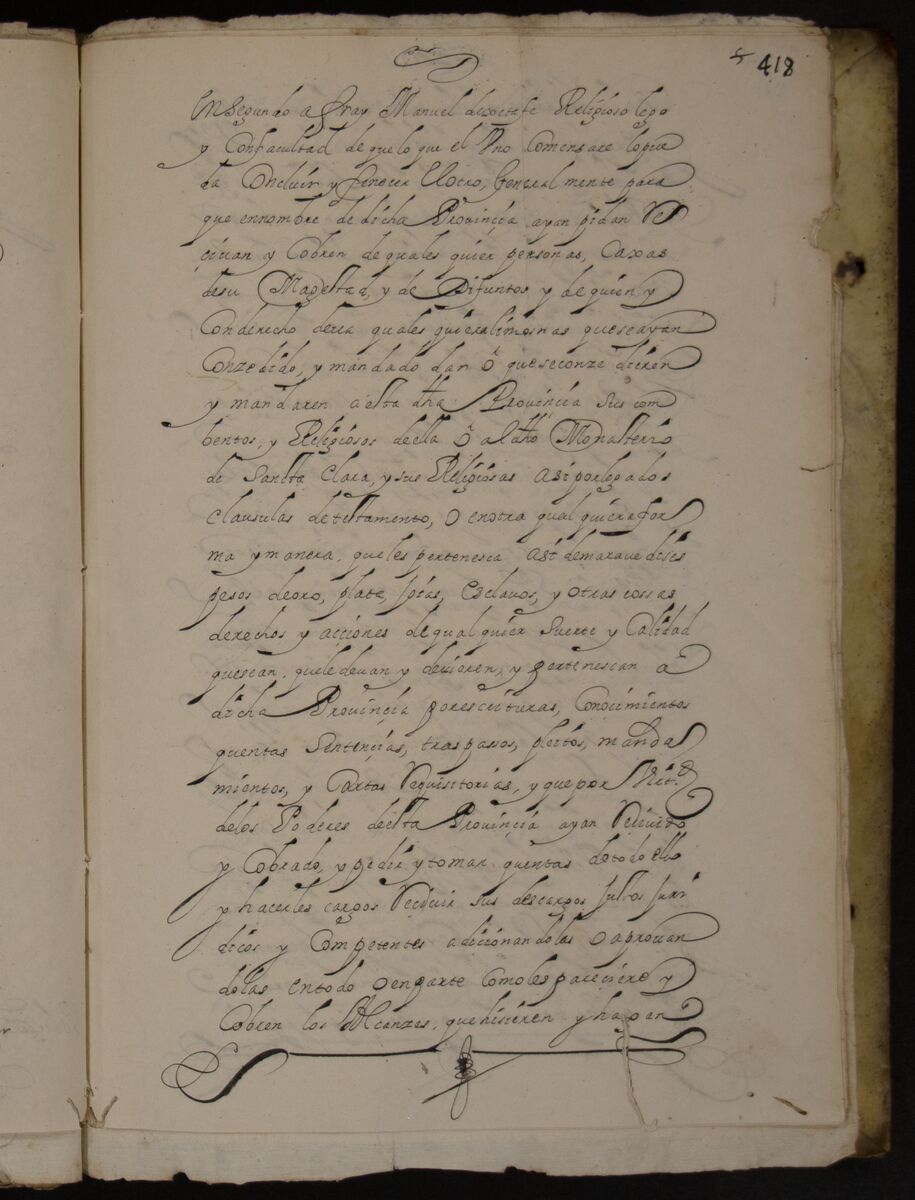 418
en Segundo a fray Manuel de Religioso lego
y Confacultad de que lo que el Vno Comensare lo pue
da Concluir y fenecer el otro, Generalmente para
que ennombre de dicha Prouinçia ayan pidan Re
çiuan y Cobren de quales quier personas, Caxas
desu Magestad, y de Difuntos y de quien y
Conderecho deua quales quiera limosnas queseayan
Conzedido, y mandado dar ô que se conzedieren
y mandaren a esta dha Prouinçia sus com
bentos, y Religiosos de ella ô al dho Monasterio
de Santta Clara, y sus Religiosas asi por legados
clausulas de testamento, o en otra qual quiera for
ma y manera. que les pertenesca asi de marauedises
pesos de oro, plata, Joias, esclauos, y otras cossas
derechos y acciones de qual quier suerte y Calidad
quesean. quele deuan y deuieren, y pertenescan a
dicha Prouinçia por escrituras, Conoçimientos
quentas Sentençias, traspassos, pleitos, manda
mientos, y Cartas Requisitorias, y que por
delos Poderes de esta Prouinçia ayan Reciuido
y Cobrado, y pedir y tomar quentas de todo ello
y hacerles cargos Reciuir sus descargos Justos Juri
dicos y Competentes adicionandolas o aprouan
dolas en todo o en parte Como les pareciere y
Cobren los Alcanzes, que hisieren y hagan